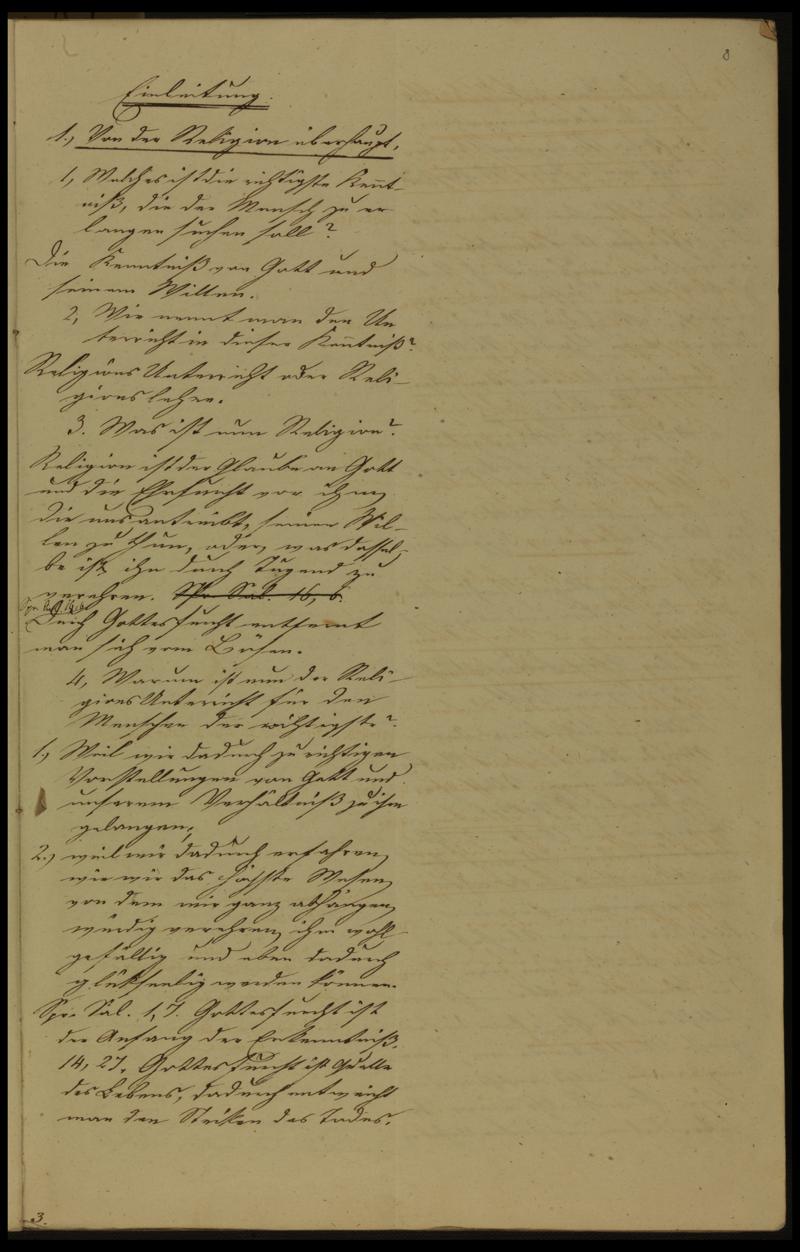 8
Einleitung.
1.) Von der Religion überhaupt.
1, Welches ist die wichtigste Kennt-
niß, die der Mensch zu er
langen suchen soll?
Die Kenntniß von Gott und
seinem Willen.
2, Wie nennt man den Un
terricht in dieser Kenntniß?
Religions Unterricht oder Reli-
gionslehre.
3. Was ist nun Religion?
Religion ist der Glaube an Gott
und die Ehrfurcht vor ihm,
die uns antreibt, seinen Wil-
len zu thun, oder, was dassel-
be ist, ihn durch Tugend zu
verehren. Spr. Sal. 16, 6.
Spr. Sal. 16, 6.
Durch Gottesfurcht entfernt
man sich vom Bösen.
4, Warum ist nun der Reli-
gions Unterricht für den
Menschen der wichtigste?
1.) Weil wir dadurch zu richtigen
Vorstellungen von Gott und
unserem Verhältniß zu ihm
gelangen;
2.) weil wir dadurch erfahren,
wie wir das höchste Wesen,
von dem wir ganz abhängen,
würdig verehren, ihm wohl
gefällig und eben dadurch
glükseelig werden können.
Spr. Sal. 1, 7. Gottesfurcht ist
der Anfang der Erkenntniß.
14, 27. Gottesfurcht ist Quelle
des Lebens, dadurch entweicht
man den Striken des Todes.
3.